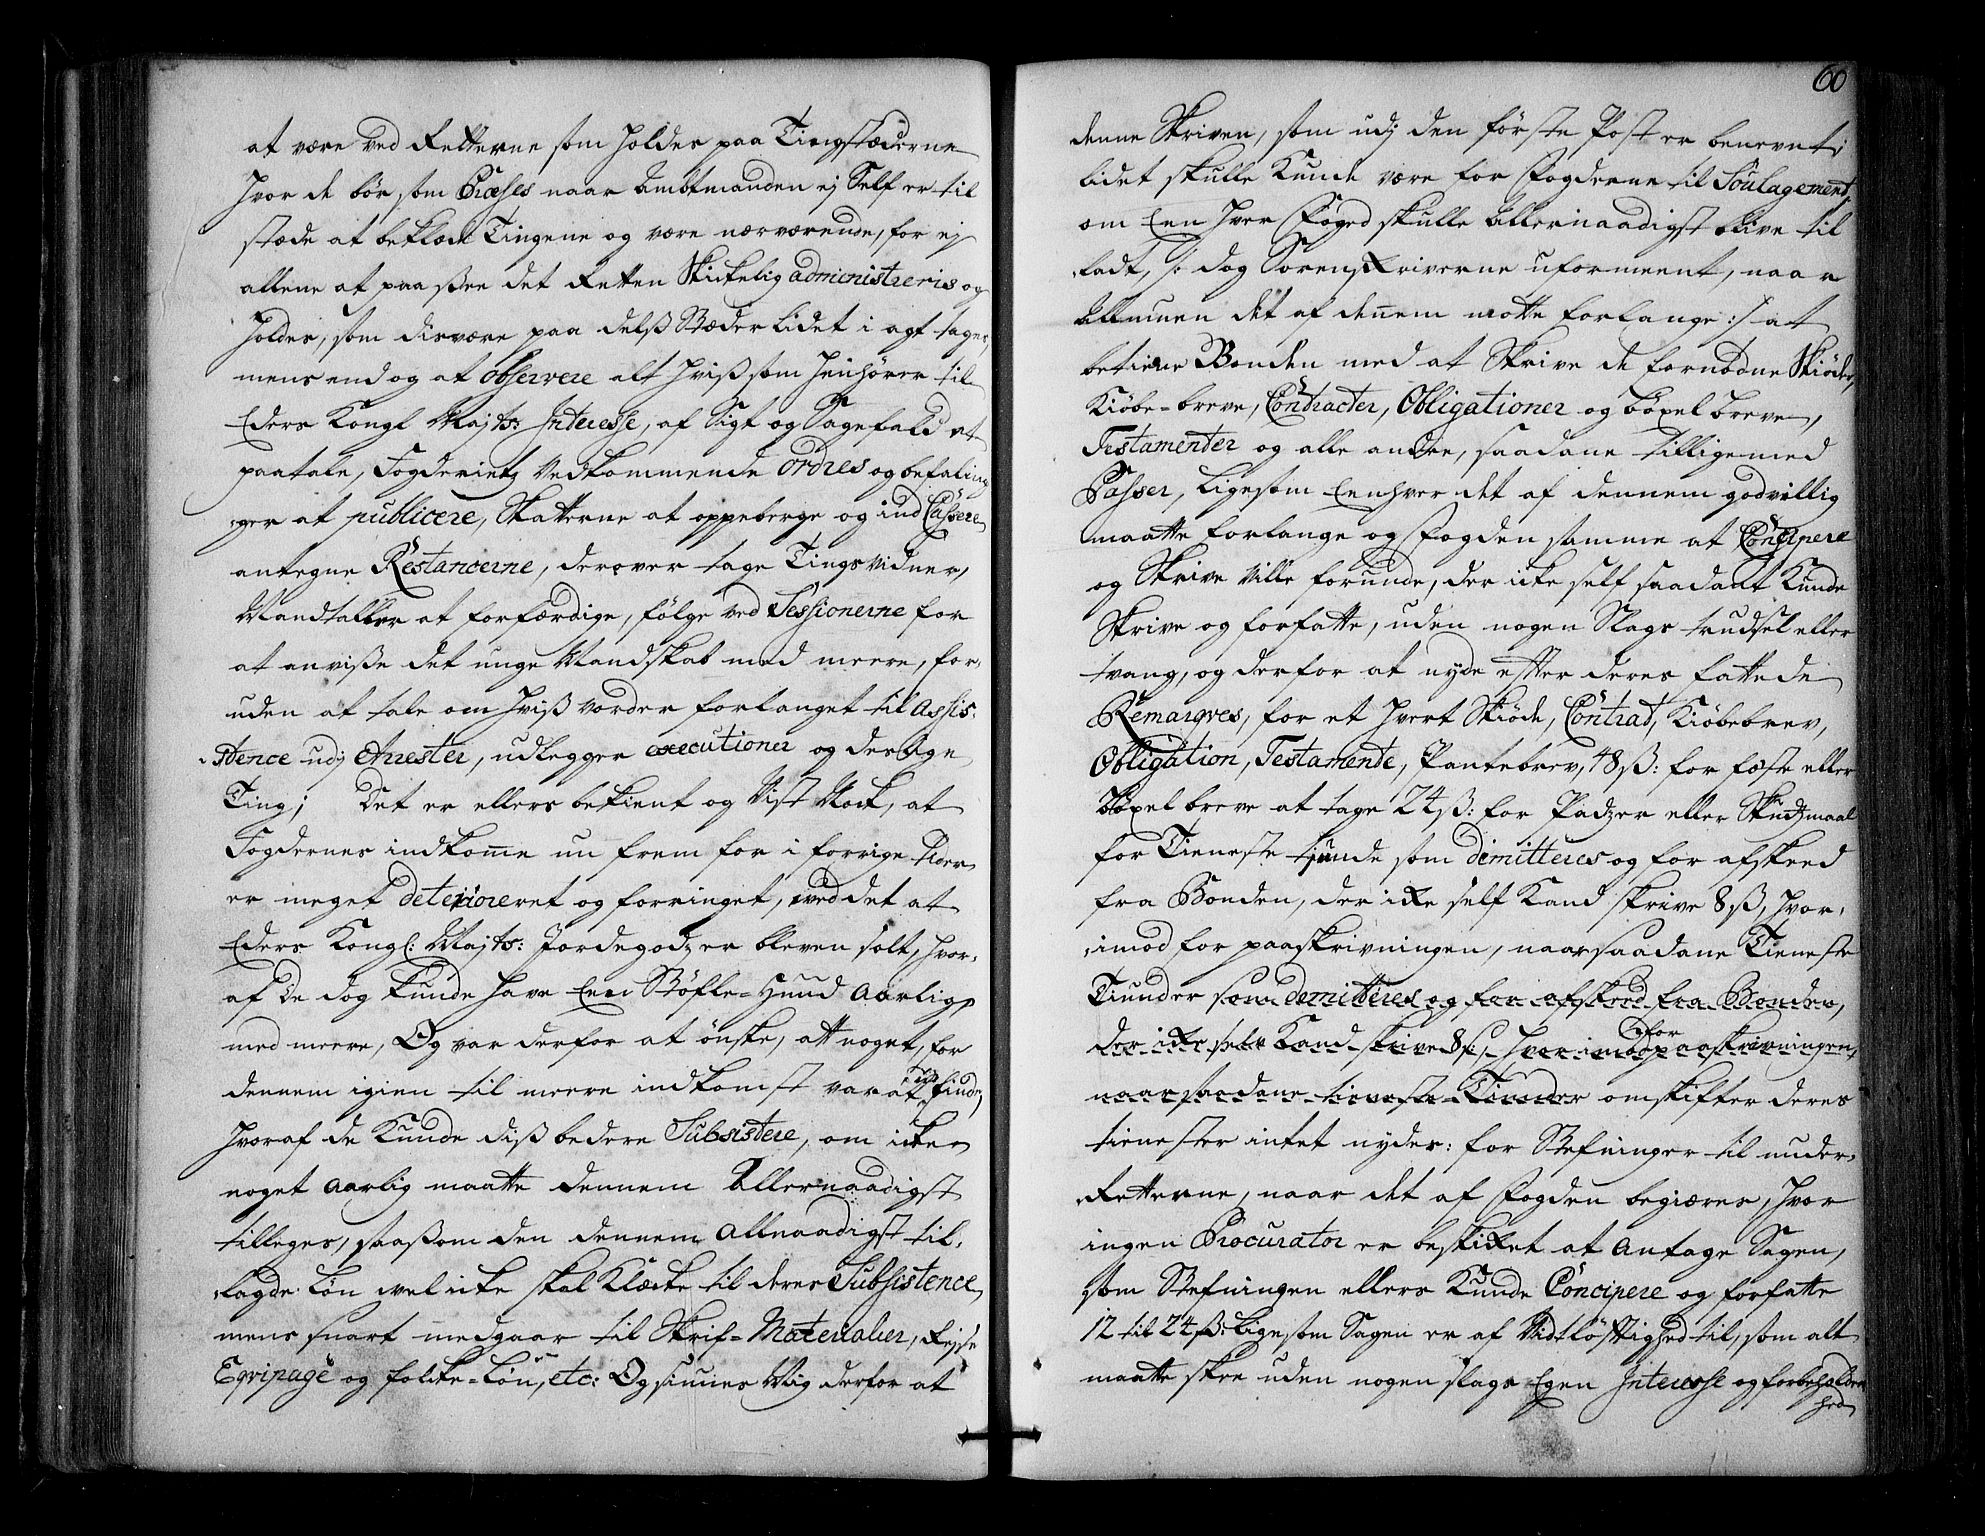 at være ved Retterne som holdes paa Tingstæderne
hvor de bör som Præses naar Ambtmanden ej Self er til
stæde at beklæde Tingene og være nærværende, for ej
allene at paa ssee det Retten Skickelig administreris og
holdes, som disvære paa delss Stæder Lidet i agt tages,
mens end og at observere alt hviss som henhører til
Eders Kongl Majts: Interesse, af Sigt og Sagefald at
paatale, Fogderietz Vedkommende Ordres og befalin-
ger at publicere, Skatterne at oppeberge og ind Cassere
antegne Restancerne, derover tage Tingsvidner,
Mandtaller at forfærdige, følge ved Sessionerne for
at anvisse det unge Mandskab med meere, for-
uden at tale om hviss vorder forlanget til Assis-
stence udj Arrester, udlegger executioner og deslige
Ting; Det er ellers bekient og Vist Nock, at
Fogdernes indkome nu frem for i forrige tider
er meget deterioreret og forringet, ved det at
Eders Kongl: Majts: Jordegodz er bleven solt, hvor-
af De dog kunde have Een Støfle-Hund Aarlig,
med meere, Og var derfor at önske, att noget, for
dennem igien til meere indkomst var at udfinde,
hvoraf de kunde diss bedere Subsistere, om icke
noget Aarlig maatte dennem Allernaadigst
tilleges, saassom den dennem Allnaadigst til-
lagde Løn vel icke skal Klæcke til deres Subsistence
mens snart medgaar til Skrif-Materialier, Rejse
Eqvipage og folcke-Løn, etc: Og siunes Mig derfor at
60
denne Skriven, som udj den förste Post er benevnt,
lidet skulle Kunde være for Fogderne til Soulagement,
om Een hver Foged skulle Allernaadigst blive til
ladt, /: dog Sorenskriverne uformeent, naar
Allmuen det af dennem motte forlange :/ at
betiene Bonden med at Skrive de fornödne Skiöder,
Kiöbe-breve, Contracter, Obligationer og böxel breve,
Testamenter og alle andre, saadane tilligemed
Passer, Ligesom Eenhver det af dennem godvillig
maatte forlange og Fogden samme at Concipere
og Skrive Ville forunde, der icke self saadant Kunde
Skrive og forfatte, uden nogen Slags trudsel eller
tvang, og derfor at nyde efter deres fattede
Remarqves, for et hvert Skiöde, Contract, Kiöbebrev,
Obligation, Testamente, Pantebrev, 48 ss: for fæste eller
Böxel breve at tage 24 ss: for Padzer eller Skudzmaal
for Tieneste tiunde som dimitteres og for afskeed
fra Bonden, der ikke self Kand skrive 8 ss, hvor-
imod for paaskrivningen, naar saadane Tieneste
Tiunder som demitteres og for afskeed fra Bonden,
der ikke selv Kand skrive 8 ss, hvorimod for paaskrivningen,
naar saadane tieneste Tiunder omskifter deres
tienester intet nydes: for Stefninger til under-
Retterne, naar det af Fogden begiæres, hvor
ingen Procurator er beskikket at Antage Sagen,
som Stefningen ellers Kunde Concipere og forfatte
12 til 24 ss: Ligesom Sagen er af Vidtløftighed til, som alt
maatte skee uden nogen slags Egen Interesse og forbeholden
hed